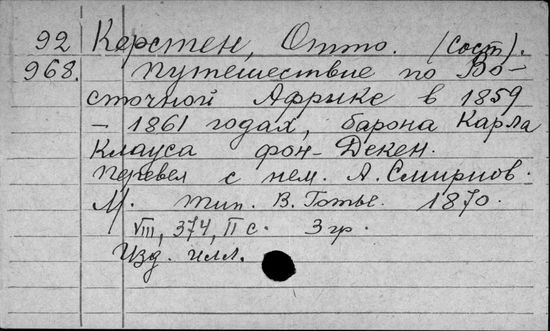 92 Керстен, Отто. (Сост).
968. Путешествие по Во-
сточной Африке в 1859
- 1861 годах, барона Карла
Клауса фон-Декен.
Перевел с нем. А. Смирнов.
М. тип. В. Готье. 1870.
VIII, 374, II с. 3 гр.
Изд. илл.